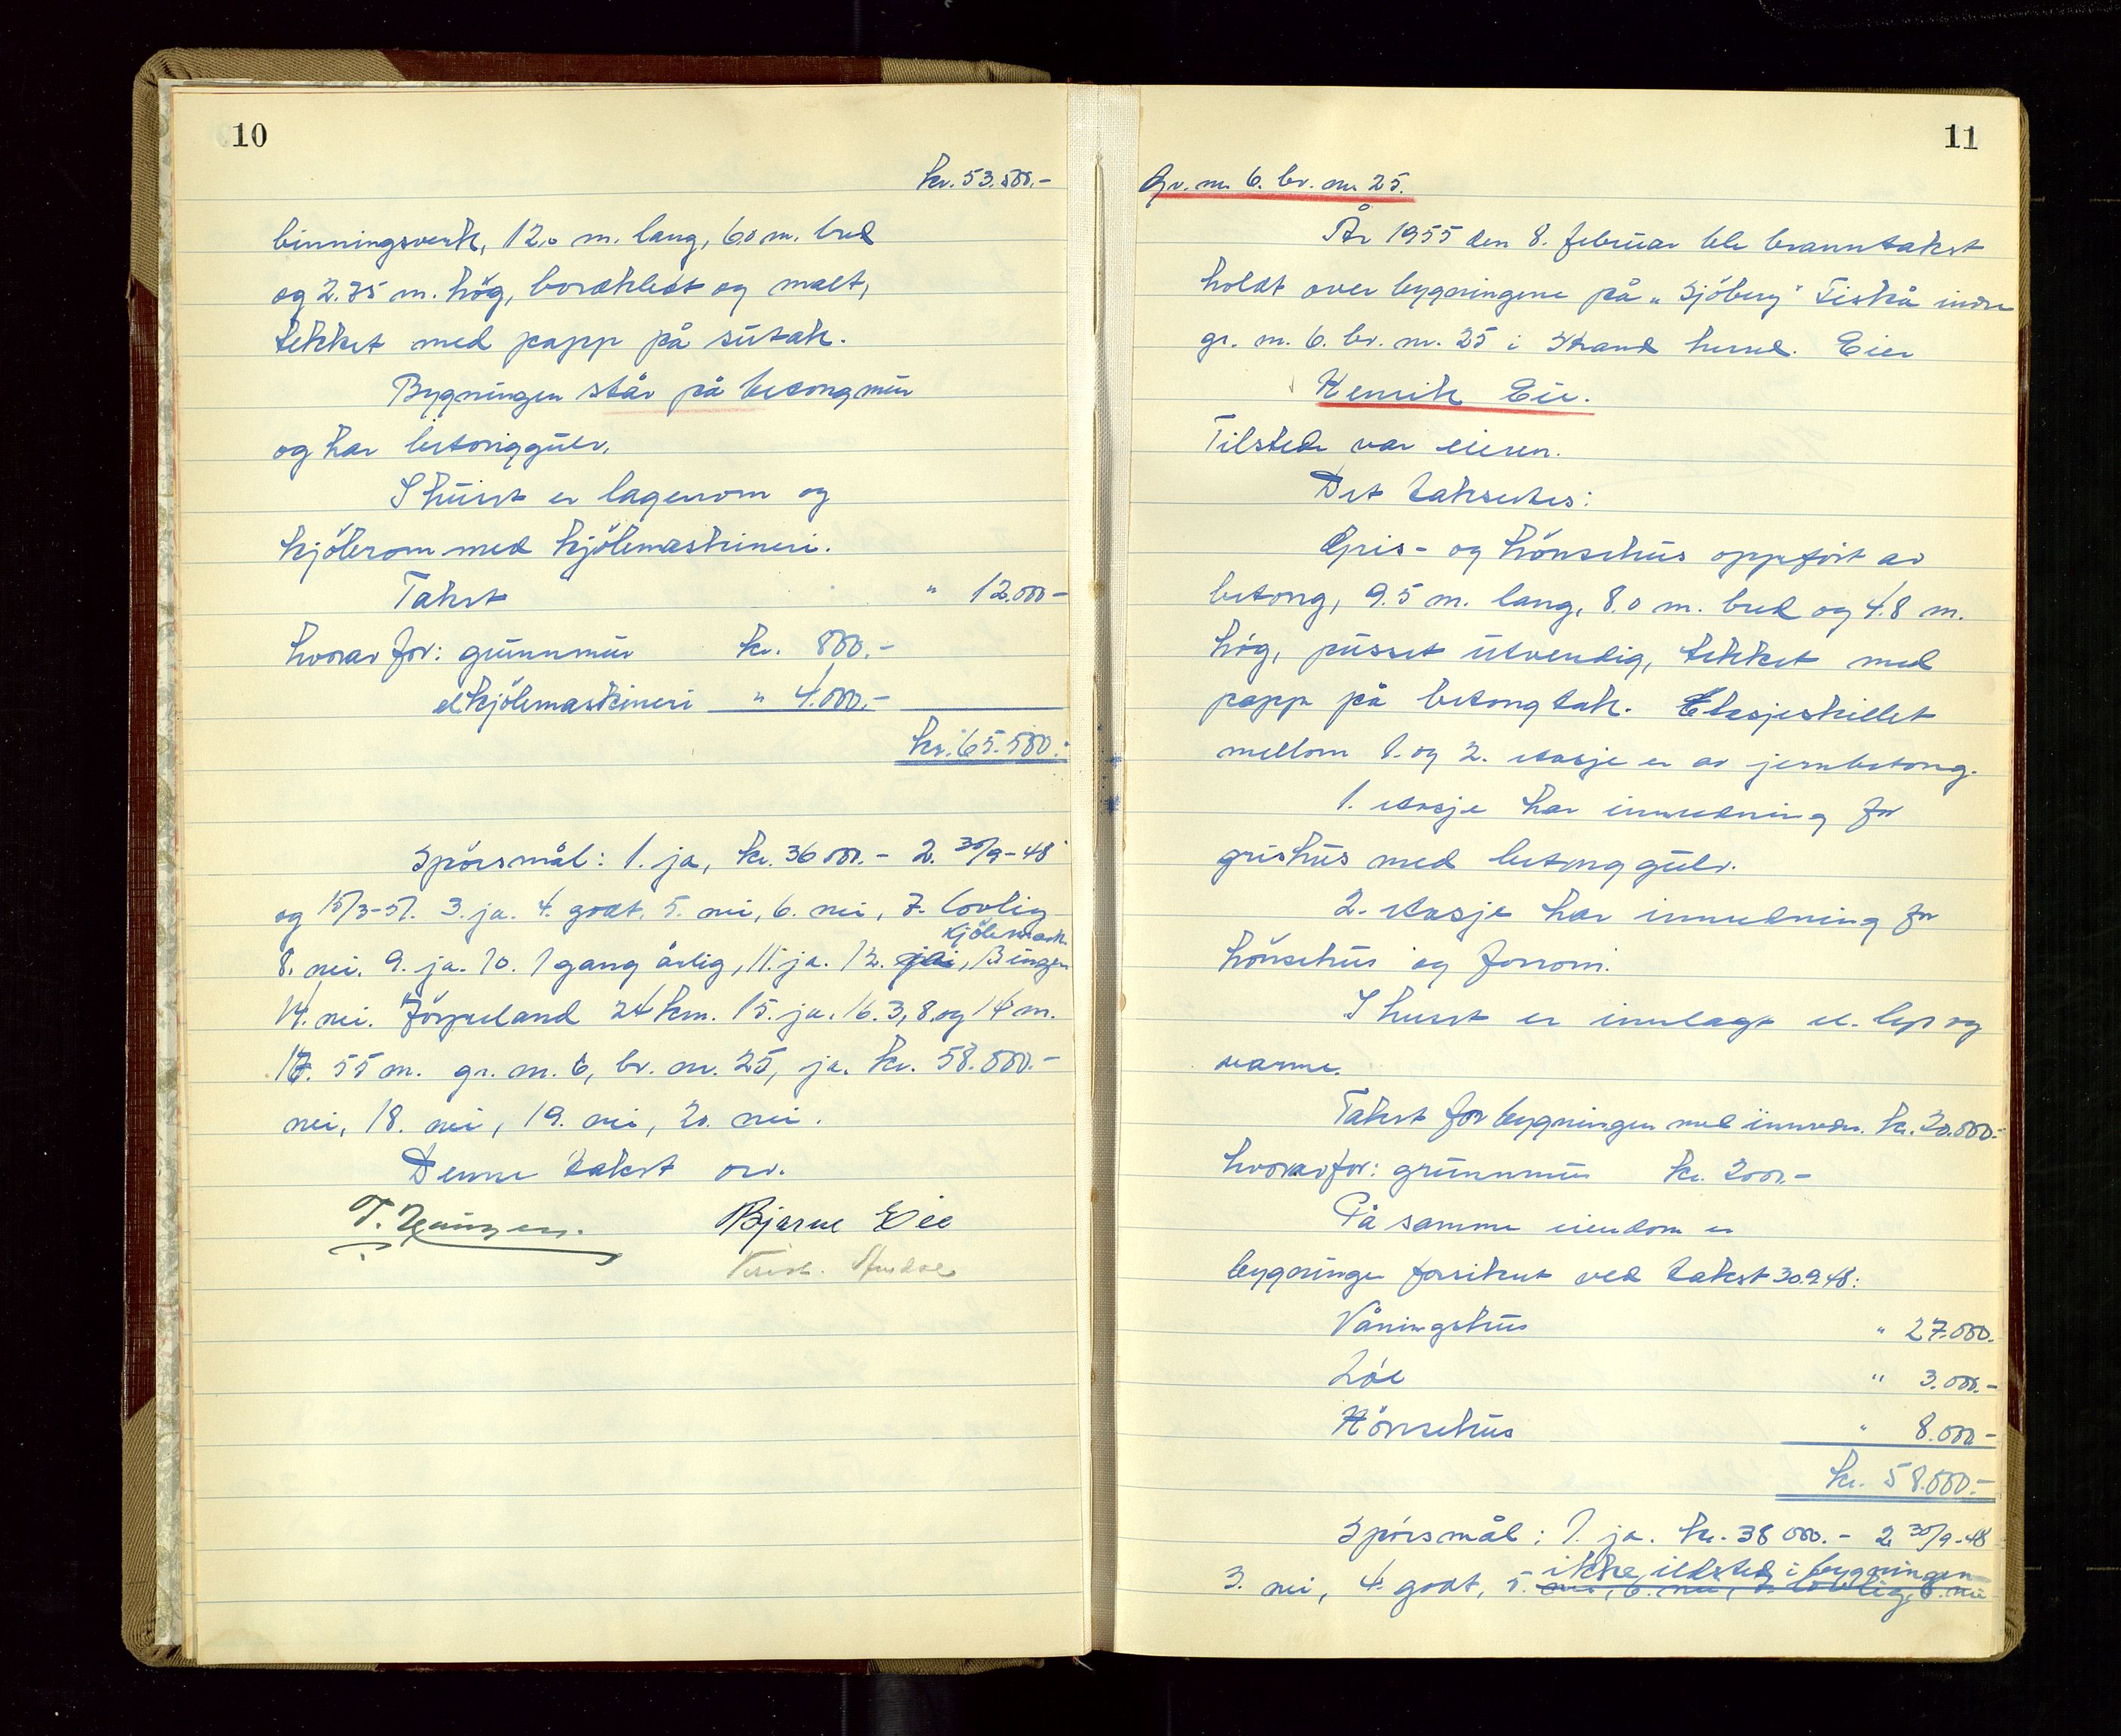 10
kr. 53.500.-
binningsverk, 12.0 m. lang, 6.0 m. bred
og 2.75 m. høg, bordkledt og malt,
tekket med papp på sutak.
Bygningen står på betongmur
og har betonggulv.
I huset er lagerrom og
kjölerom med kjölemaskineri.
Takst " 12.000-
hvorav for: grunnmur kr. 800.-
el kjölemaskineri " 4.000.-
kr. 65.500.-
Spörsmål: 1. ja, kr. 36000.- 2. 30/9-48
og 15/3-51. 3. ja. 4. godt, 5. nei, 6. nei, 7. lovlig
kjölemask.
8. nei. 9. ja. 10. 1 gang årlig, 11. ja. 12. 13 ingen
14. nei. Jörpeland 24 km. 15. ja. 16. 3, 8 og 14 m.
17. 55 m. gr. nr. 6, br. nr. 25, ja. kr. 58.000.-
nei, 18. nei, 19. nei, 20. nei.
Denne takst osv.
Bjarne Eie
11
Gr. nr. 6. br. nr. 25.
År 1955 den 8. februar ble branntakst
holdt over bygningene på "Sjöberg" Fiskå indre
gr. nr. 6. br. nr. 25 i Strand herred. Eier
Henrik Eie.
Tilstede var eieren.
Det takseres:
Gris- og hönsehus oppfört av
betong, 9.5 m. lang, 8.0 m. bred og 4.8 m.
høg, pusset utvendig, tekket med
papp på betongtak. Etasjeskillet
mellom 1. og 2. etasje er av jernbetong.
1. etasje har innredning for
grishus med betonggulv.
2. etasje har innredning for
hönsehus og forrom.
I huset er innlagt el. lys og
varme.
Takst for bygningen med innredn. kr. 20.000.-
hvorav for: grunnmur kr. 2000.-
På samme eiendom er
bygninger forsikret ved takst 30.9.48:
Våningshus " 27.000.-
Löe " 3.000.-
Hönsehus " 8.000-
kr. 58.000.-
Spörsmål: 1. ja. kr. 38 000.- 2. 30/9-48
ikke ildsted i bygningen
3. nei, 4. godt, 5. nei, 6. nei, 7. lovlig, 8. nei